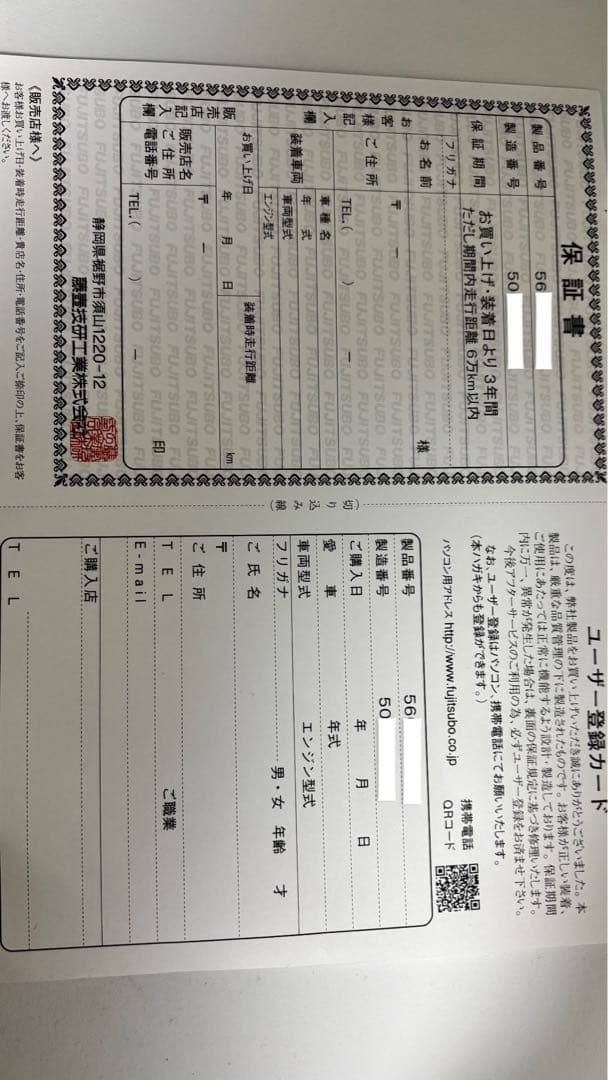 保証書
製品番号 56
製造番号 50
保証期間 お買い上げ・装着日より3年間
ただし期間内走行距離6万km以内
お客様ご記入欄
フリガナ
お名前 様
ご住所 〒 ー
TEL.( ) ー
装着車両
車種名
年式
車両型式
エンジン型式
販売店記入欄
お買い上げ日 年 月 日
装着時走行距離 km
販売店名
ご住所
電話番号
〒 ー
TEL.( ) ー
印
静岡県裾野市須山1220-12
藤壺技研工業株式会社
《販売店様へ》
お客様お買い上げ日・装着時走行距離・貴店名・住所・電話番号をご記入ご捺印の上、保証書をお客
様へお渡しください。
(切り込み線)
ユーザー登録カード
この度は、弊社製品をお買い上げいただき誠にありがとうございました。本
製品は、厳重な品質管理の下に製造されたものです。お客様が正しい装着、
ご使用にあたっては正常に機能するよう設計・製造しております。保証期間
内に万一、異常が発生した場合は、裏面の保証規定に基づき修理いたします。
今後アフターサービスのご利用の為、必ずユーザー登録をお済ませ下さい。
なお、ユーザー登録はパソコン、携帯電話にてお願いいたします。
(本ハガキからも登録ができます。)
パソコン用アドレス http://www.fujitsubo.co.jp
携帯電話
QRコード
製品番号 56
製造番号 50
ご購入日 年 月 日
愛車 年式
車両型式 エンジン型式
フリガナ
ご氏名 男・女 年齢 才
〒
ご住所
TEL ご職業
E-mail
ご購入店
TEL